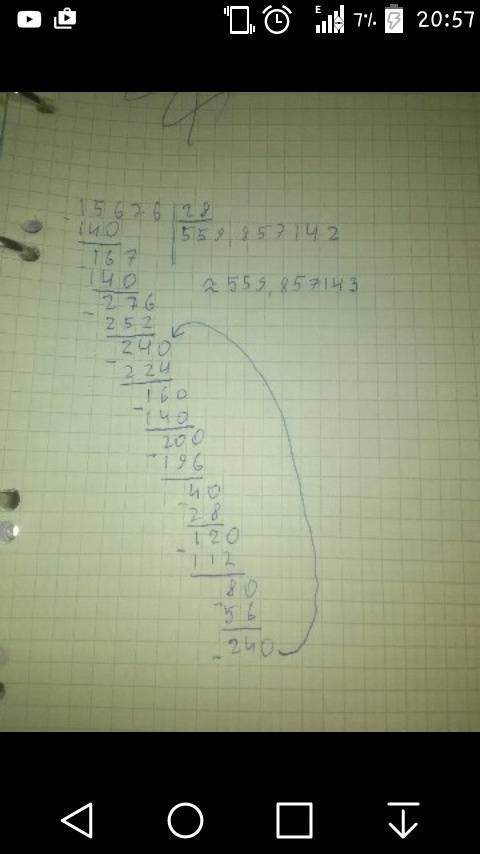 E 7% 20:57
15676 28
140 559,857142
167
140 ≈ 559,857143
276
- 252
240
- 224
160
- 140
200
- 196
40
- 28
120
- 112
80
- 56
240
-